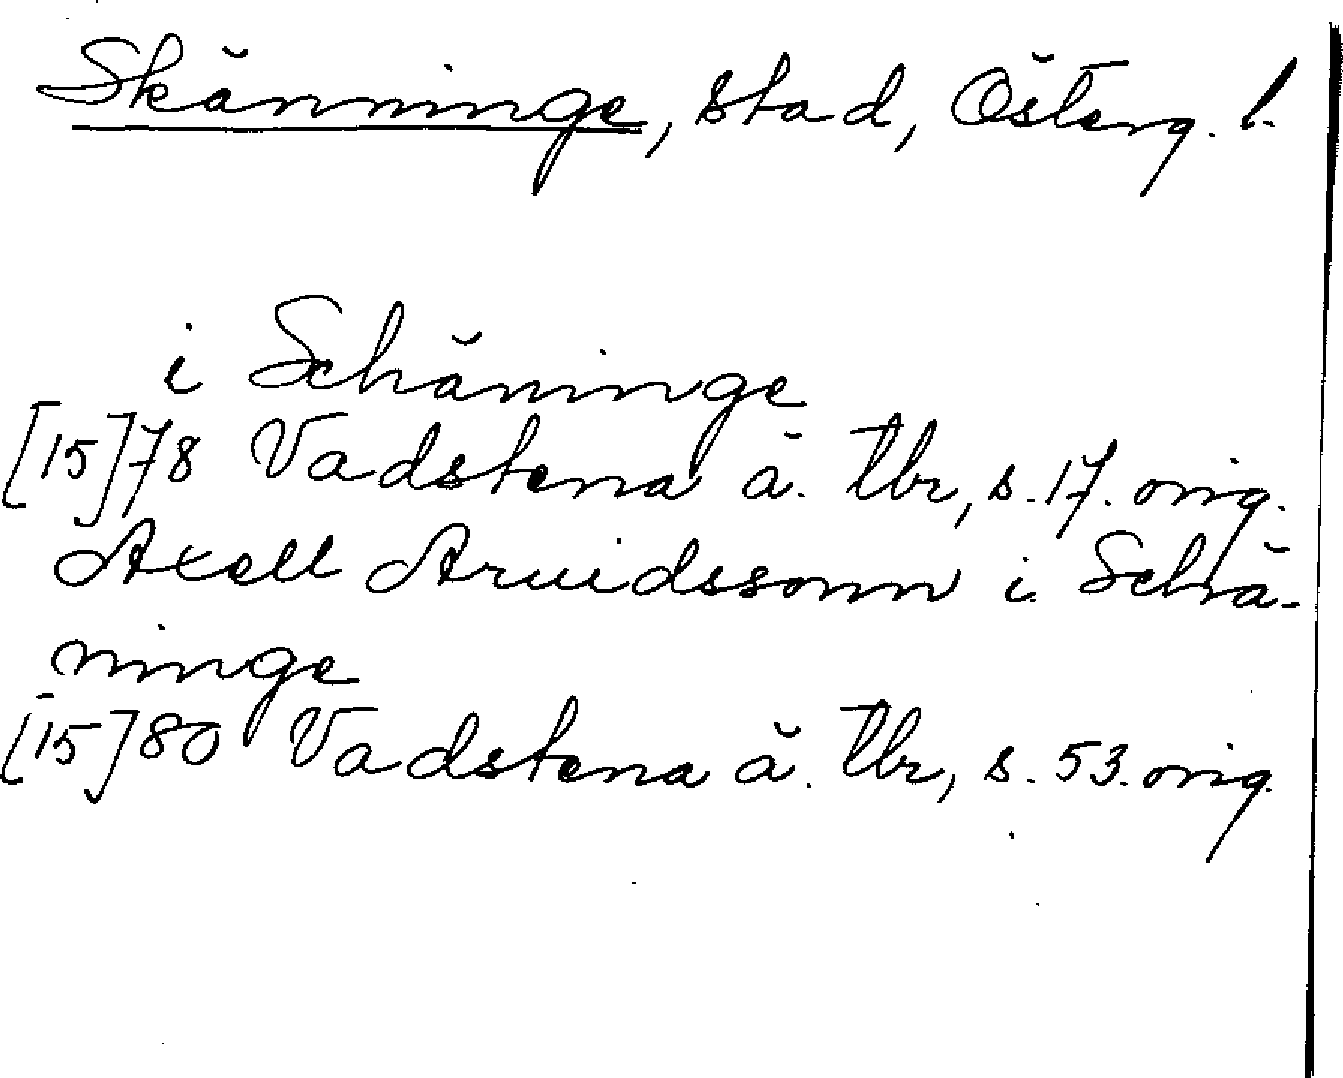 Skänninge, stad, Österg. l.
i Schäninge
[15]78 Vadstena ä. tbr, s. 17. orig.
Axell Aruidssonn i Schä-
ninge
[15]80 Vadstena ä. tbr, s. 53. orig.